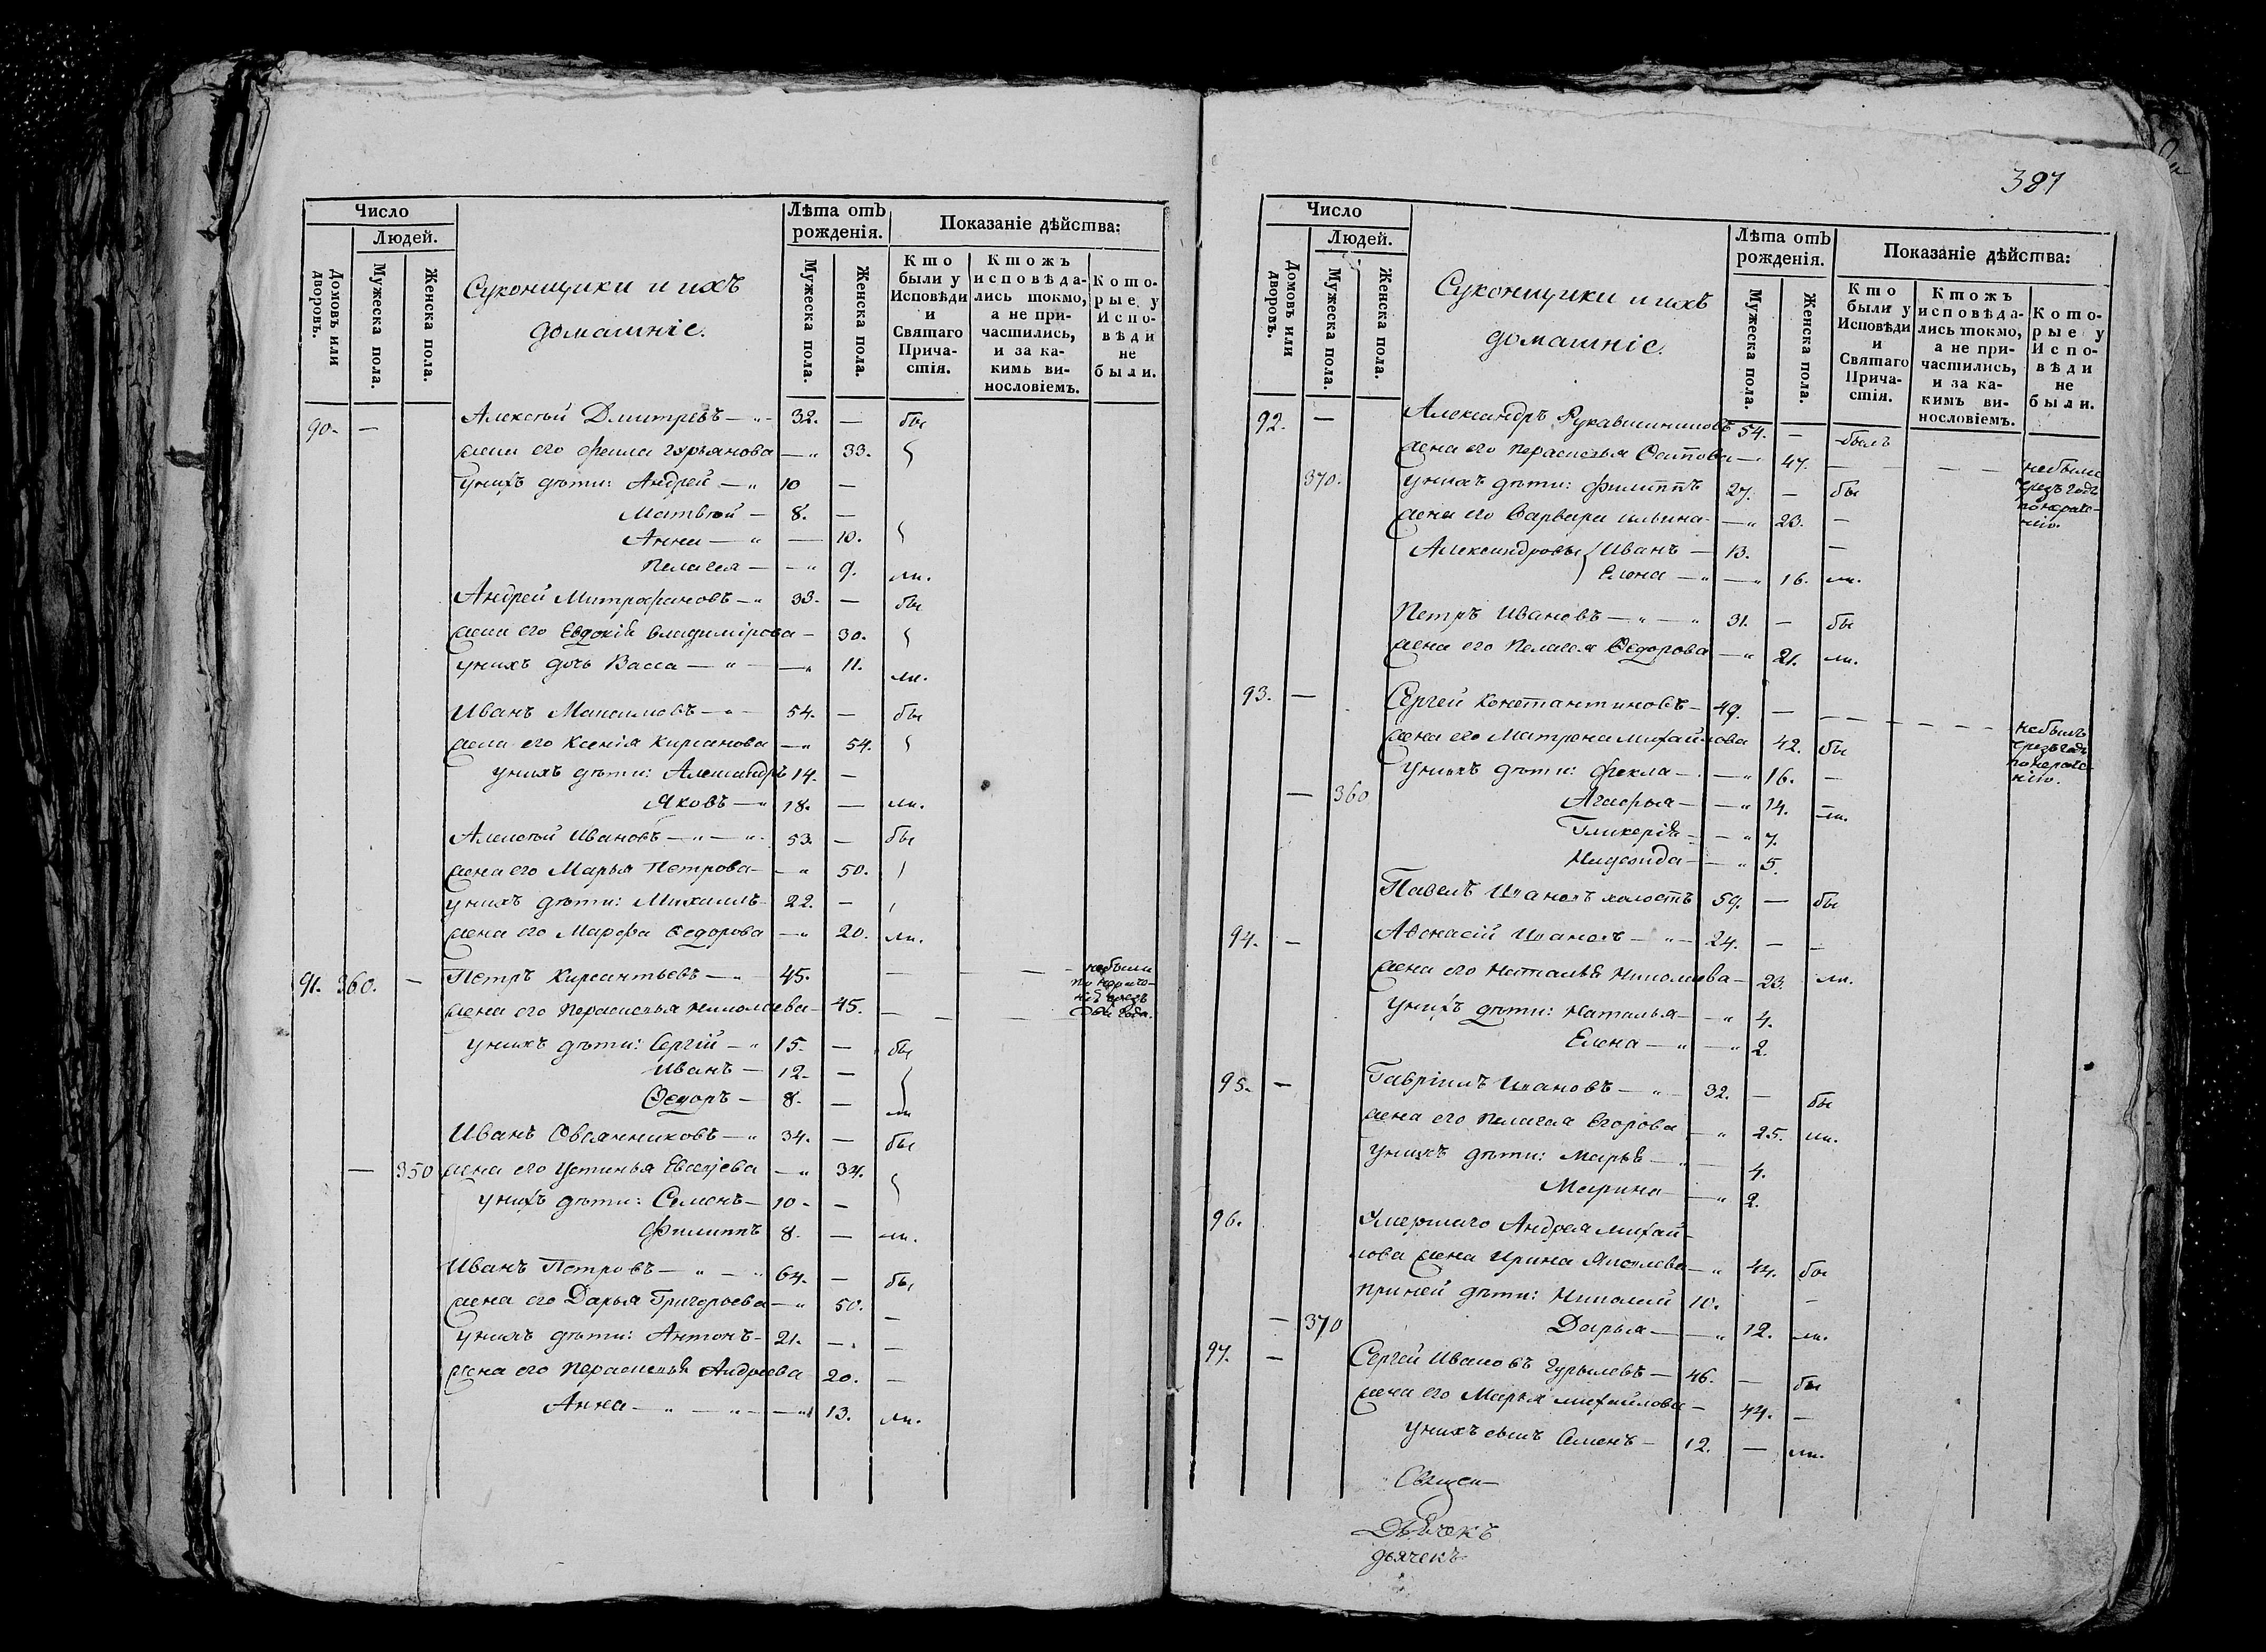 Число
Людей.
Домовъ или дворовъ.
Мужеска пола.
Женска пола.
Суконщики и ихъ
домашніе.
Лѣта отъ
рожденія.
Мужеска пола.
Женска пола.
Показаніе дѣйства:
Кто
были у
Исповѣди
и
Святаго
Прича-
стія.
Ктожъ
исповѣда-
лись токмо,
а не при-
частились,
и за ка-
кимъ ви-
нословіемъ.
Кото-
рые у
Испо-
вѣди
не
были.
90. — Алексѣй Дмитревъ — 32. — бы
жена его Фекла Гурьянова — 33.
унихъ дѣти: Андрей — 10 —
Матвѣй — 8. —
Анна — — 10.
Пелагея — — 9. ли.
Андрей Митрофановъ — 33. — бы
жена его Евдокія Владимірова — 30.
унихъ дочь Васса — — 11. ли.
Иванъ Максимовъ — 54. — бы
жена его Ксенія Кирсанова — 54.
унихъ дѣти: Александръ 14. —
Яковъ — 18. — ли.
Алексѣй Ивановъ — 53. — бы
жена его Марья Петрова — 50.
унихъ дѣти: Михаилъ 22. —
жена его Марфа Ѳедорова — 20. ли.
91. 360. — Петръ Кирсантьевъ — 45. — — небыли
жена его Параскевья Николаева — 45. — — два года.
унихъ дѣти: Сергій — 15. — бы
Иванъ — 12. —
Ѳедоръ — 8. — ли
Иванъ Овсянниковъ — 34. — бы
— 350 жена его Устинья Евсеева — 34.
унихъ дѣти: Семенъ — 10 — —
Филиппъ 8. — ли.
Иванъ Петровъ — 64. — бы
жена его Дарья Григорьева — 50. —
унихъ дѣти: Антонъ — 21. — —
жена его Параскевья Андреева 20. —
Анна — — 13. ли.
387
Число
Людей.
Домовъ или дворовъ.
Мужеска пола.
Женска пола.
Суконщики и ихъ
домашніе.
Лѣта отъ
рожденія.
Мужеска пола.
Женска пола.
Показаніе дѣйства:
Кто
были у
Исповѣди
и
Святаго
Прича-
стія.
Ктожъ
исповѣда-
лись токмо,
а не при-
частились,
и за ка-
кимъ ви-
нословіемъ.
Кото-
рые у
Испо-
вѣди
не
были.
92. — Александръ Рукавишниковъ 54. — былъ
жена его Параскевья Осипова — 47. — — — небыла
370. унихъ дѣти: Филиппъ 27. — бы
жена его Варвара Ильина — 23. —
Александровы Иванъ — 13. —
Елена — — 16. ли.
Петръ Ивановъ — 31. — бы
жена его Пелагея Ѳедорова — 21. ли.
93. — Сергей Константиновъ — 49. — — — небылъ
жена его Матрена Михайлова 42. бы
унихъ дѣти: Фекла — — 16. —
— 360 Агафья — — 14. ли.
Гликерія — — 7.
Надежда — — 5.
Павелъ Ивановъ холостъ 59. — бы
94. — Аѳонасій Ивановъ — 24. — —
жена его Наталья Николаева — 23. ли.
унихъ дѣти: Наталья — 4.
Елена — — 2.
95. — Гавріилъ Ивановъ — 32. — бы
жена его Пелагея Егорова — 25. ли.
унихъ дѣти: Марья — 4.
Марина — 2.
96. Умершаго Андрея Михай-
лова жена Ирина Яковлева — 44. бы
приней дѣти: Николай 10. —
— 370 Дарья — — 12. ли.
97. — Сергей Ивановъ Гурылевъ — 46. — бы
жена его Марья Михайлова — 44. —
унихъ сынъ Семенъ — 12. — ли.
Священ—
Дьячекъ
дьячекъ